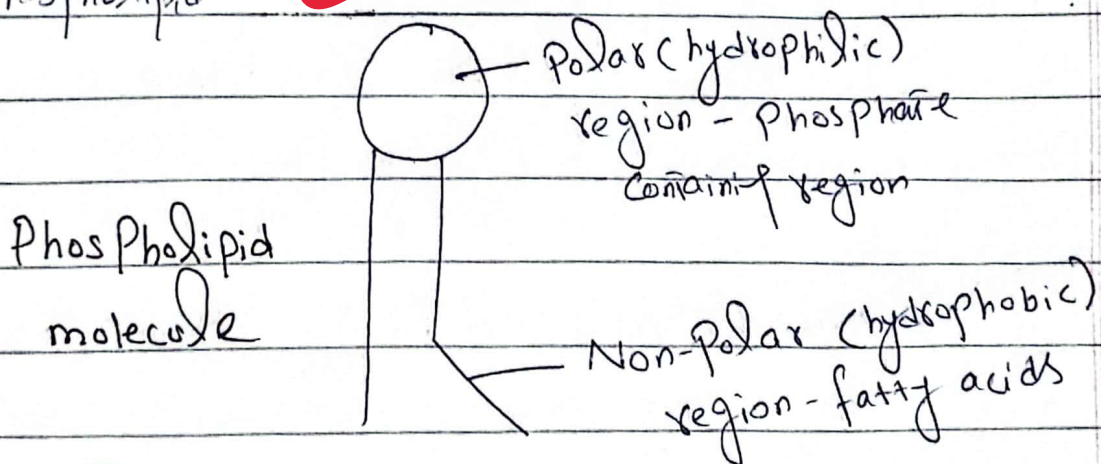 Polar (hydrophilic)
region - Phosphate
containing region
Phospholipid
molecule
Non-Polar (hydrophobic)
region - fatty acids